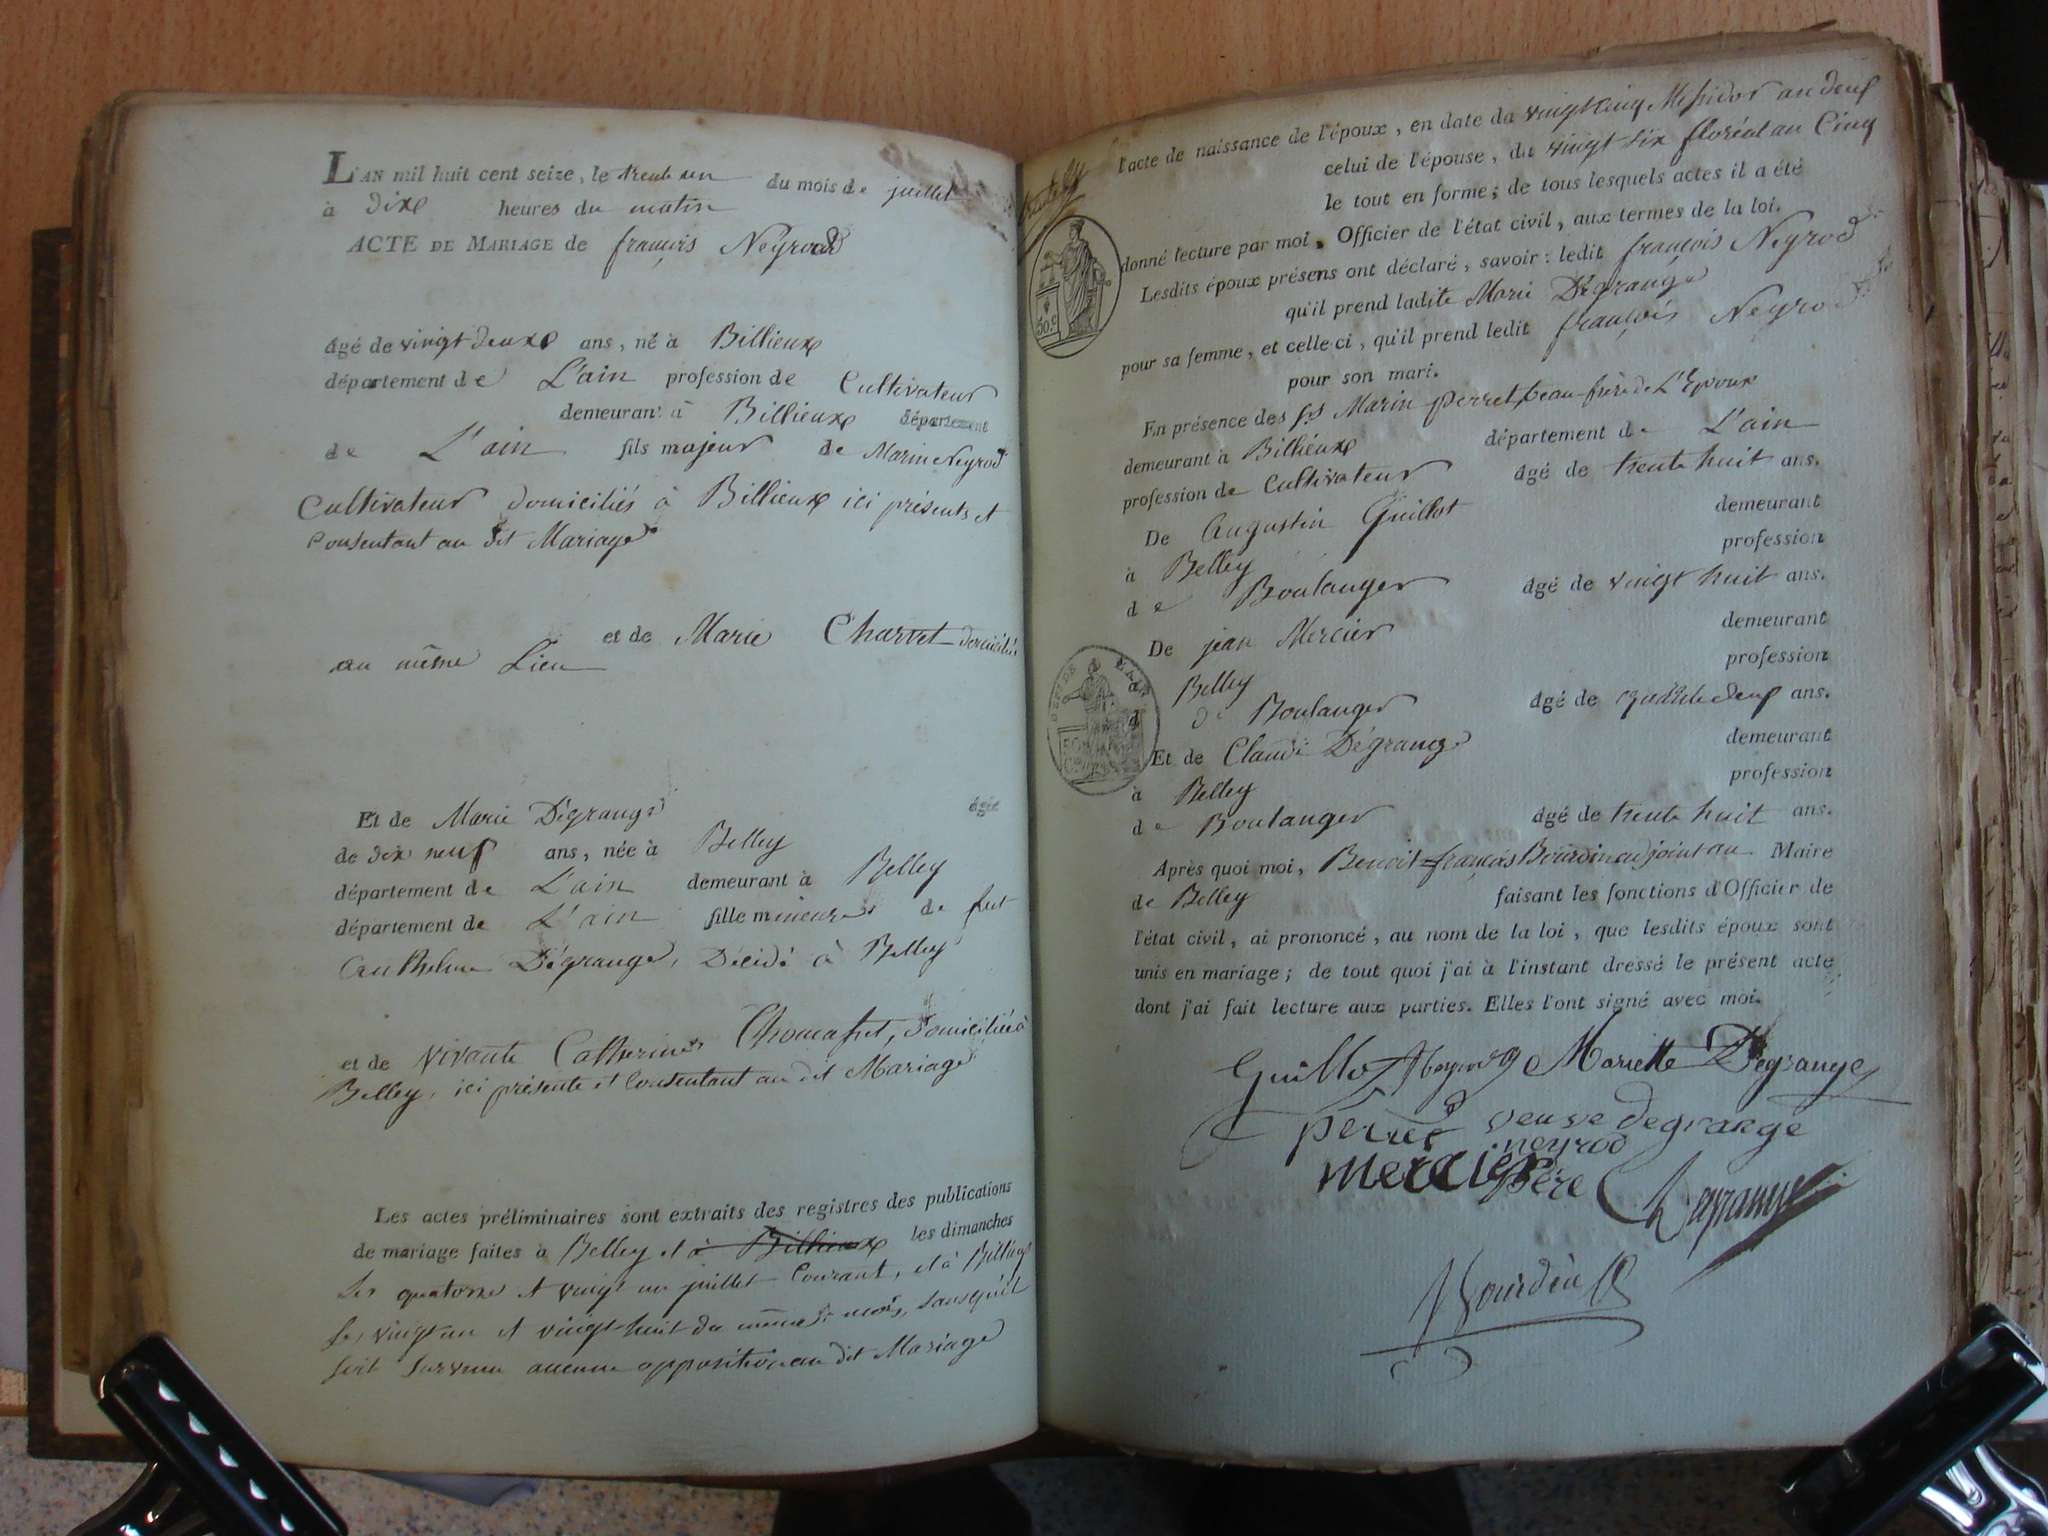 L'AN mil huit cent seize, le trente un du mois de juillet
à dix heures du matin
ACTE DE MARIAGE de françois Neyrod
âgé de vingt deux ans, né à Billieux
département de L'ain profession de Cultivateur
demeurant à Billieux département
de L'ain fils majeur de Marin Neyrod
Cultivateur domiciliés à Billieux ici présents et
Consentant au dit Mariage
et de Marie Charvet domiciliés
au même Lieu
Et de Marie Dégrange âgée
de dix neuf ans, née à Belley
département de L'ain demeurant à Belley
département de L'ain fille mineure de fut
Canthelme Dégrange, Décédé à Belley
et de vivante Catherine Thomasset, domiciliée à
Belley, ici présente et Consentant au dit Mariage
Les actes préliminaires sont extraits des registres des publications
de mariage faites à Belley et à Billieux les dimanches
Les quatorze et vingt un juillet Courant, et à Billieux
les vingt un et vingt huit du même mois, sans qu'il
soit survenu aucune opposition au dit Mariage
l'acte de naissance de l'époux, en date du vingt cinq Messidor an deux
celui de l'épouse, du vingt six floréal an Cinq
le tout en forme; de tous lesquels actes il a été
donné lecture par moi, Officier de l'état civil, aux termes de la loi.
Lesdits époux présens ont déclaré, savoir: ledit françois Neyrod
qu'il prend ladite Marie Dégrange
pour sa femme, et celle-ci, qu'il prend ledit françois Neyrod
pour son mari.
50 c
En présence des srs Marin perret, beau-frère de L'Epoux
demeurant à Billieux département de L'ain
profession de Cultivateur âgé de trente huit ans.
De Augustin Guillot demeurant
à Belley profession
de Boulanger âgé de vingt huit ans.
De jean Mercier demeurant
à Belley profession
de Boulanger âgé de ans.
Et de Claude Dégrange demeurant
à Belley profession
de Boulanger âgé de trente huit ans.
Après quoi moi, Benoit-françois Bourdin adjoint au Maire
de Belley faisant les fonctions d'Officier de
l'état civil, ai prononcé, au nom de la loi, que lesdits époux sont
unis en mariage; de tout quoi j'ai à l'instant dressé le présent acte
dont j'ai fait lecture aux parties. Elles l'ont signé avec moi.
Guillot Mariette Degrange
perret veuve degrange
mercier neyrod père Degrange
Bourdin